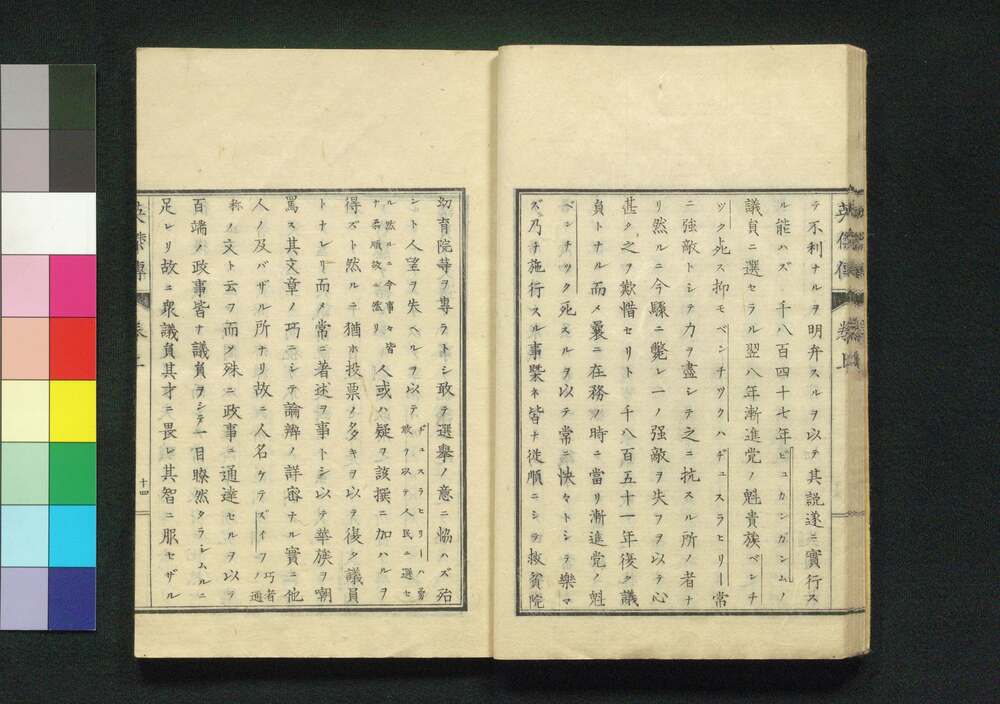 英傑傳 卷上
テ不利ナルヲ明弁スルヲ以テ其説遂ニ實行ス
ル能ハズ 千八百四十七年ビュカンガンムノ
議負ニ選セラル翌八年漸進党ノ魁貴族ベンチ
ツク死ス抑モベンチツクハヂュスラヒリー常
ニ強敵トシテ力ヲ盡シテ之ニ抗スル所ノ者ナ
リ然ルニ今縣ニ斃レ一ノ强敵ヲ失フヲ以テ心
甚ク之ヲ歎惜セリト 千八百五十一年後ク議
負トナルル而メ曩ニ在務ノ時ニ當リ漸進党ノ魁
ベンチツク死スルヲ以テ常ニ怏々トシテ樂マ
ズ乃チ施行スル事槩ネ皆ナ従順ニシテ救貧院
幼育院等ヲ專ラトシ敢テ選擧ノ意ニ恊ハズ殆
ント人望ヲ失ヘルヲ以テ ヂュスラヒリーハ勇敢ヲ以テ人民ニ選セ
ル然ルニ今事々皆ナ柔順故ニ然リ 人或ハ疑フ該撰ニ加ハルヲ
得ズト然ルニ猶ホ投票ノ多キヲ以ヲ復ク議員
トナレリ而メ常ニ著述ヲ事トシ以テ華族ヲ嘲
罵ス其文章ノ巧ニシテ論辨ノ詳密ナル實ニ他
人ノ及バザル所ナリ故ニ人名ケテズイフノ 巧者ノ通
称 ノ文ト云フ而メ殊ニ政事ニ通達セルヲ以テ
百端ノ政事皆ナ議負ヲシテ一目瞭然タラシムルニ
足レリ故ニ衆議負其才ニ畏レ其智ニ服セザル
十四
英傑傳 卷上